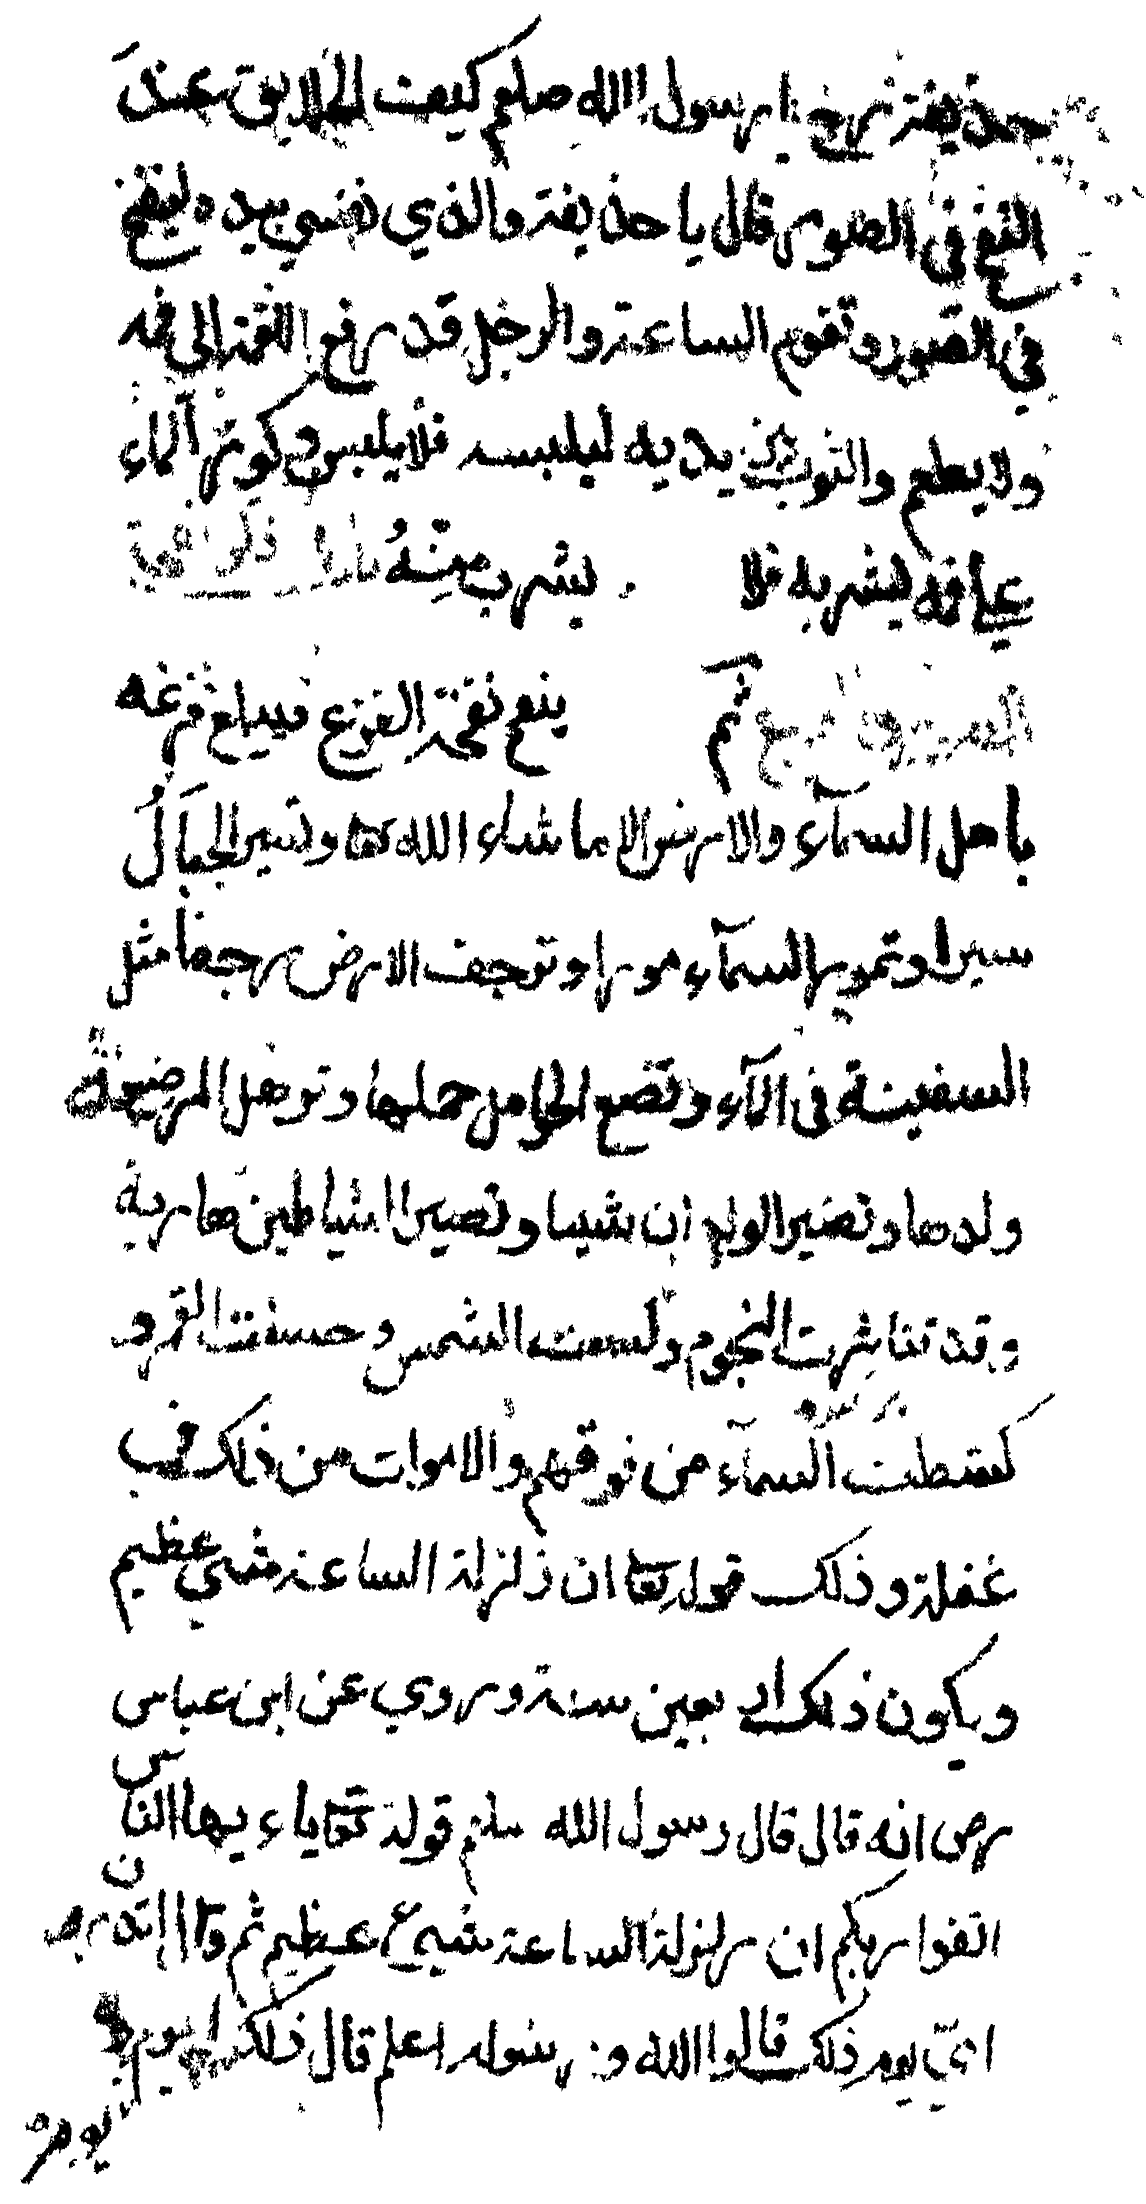 حذيفة رض يا رسول الله صلعم كيف الخلايق عند
النفخ في الصور قال يا حذيفة والذي نفسي بيده لينفخ
في الصور وتقوم الساعة والرجل قد رفع اللقمة الى فمه
ولا يطعم والثوب بين يديه ليلبسه فلا يلبس وكوز الماء
على فمه ليشربه فلا يشرب منه
ثم ينفخ نفخة الفزع فيبلغ فزعه
باهل السمآء والارض الا ما شاء الله تعا وتسير الجبال
سيرا وتمور السمآء مورا وترجف الارض رجفا مثل
السفينة في المآء وتضع الحوامل حملها وتوهل المرضعة
ولدها وتصير الولدان شيبا وتصير الشياطين هاربة
وقد تناثرت النجوم وكسفت الشمس وخسفت القمر و
كشطت السمآء من فوقهم والاموات من ذلك في
غفلة وذلك قوله تعا ان زلزلة الساعة شي عظيم
ويكون ذلك اربعين سنة وروي عن ابن عباس
رض انه قال قال رسول الله صلعم قوله تعا ياء يها الناس
اتقوا ربكم ان زلزلة الساعة شيء عظيم ثم قال اتدرون
اي يوم ذلك قالوا الله و رسوله اعلم قال ذلك اليوم
يوم